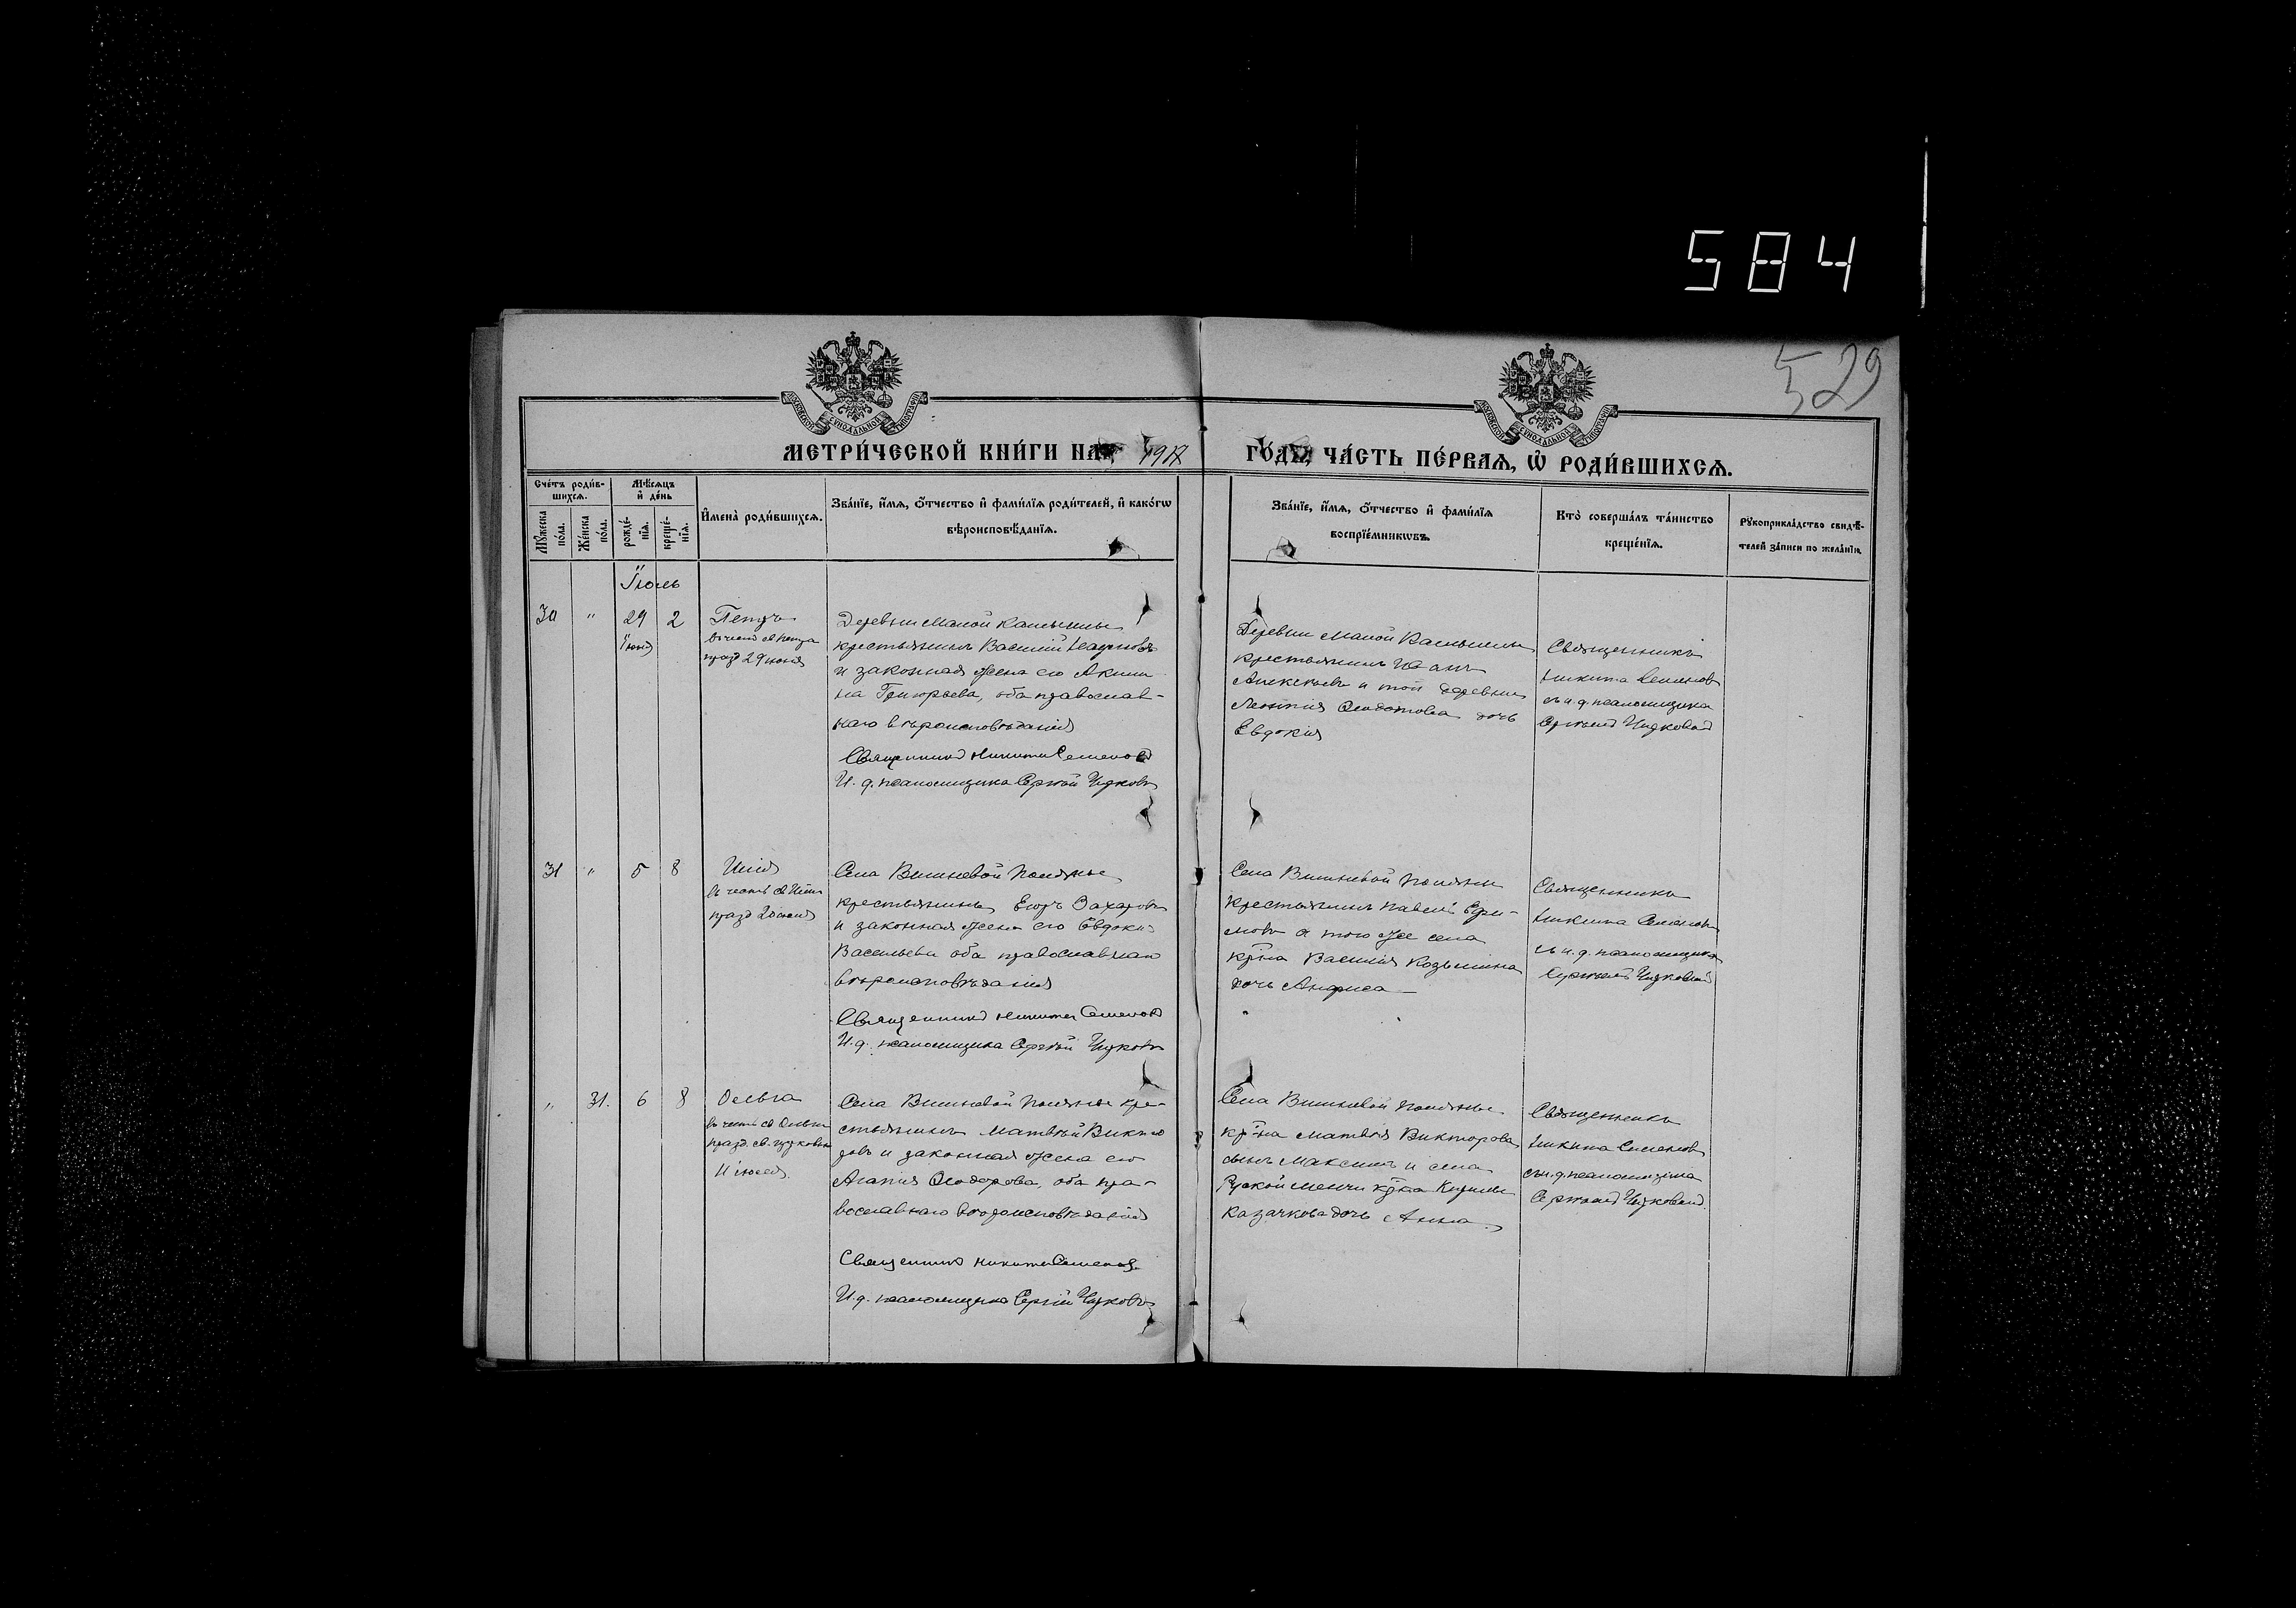 584
529
МОСКОВСКОЙ СѴНОДАЛЬНОЙ ТИПОГРАФІИ
МОСКОВСКОЙ СѴНОДАЛЬНОЙ ТИПОГРАФІИ
МЕТРИ́ЧЕСКОЙ КНИ́ГИ НА 1917
ГОДЪ, ЧА́СТЬ ПЕ́РВАѦ, Ѽ РОДИ́ВШИХСѦ.
Сче́тъ роди́в-
шихсѧ.
Мꙋ́жеска по́ла.
Же́нска по́ла.
Мѣ́сѧцъ
и҆ де́нь
рожде́-
нїѧ.
креще́-
нїѧ.
И҆мена̀ роди́вшихсѧ.
Зва́нїе, и҆́мѧ, ѻ҆́тчество и҆ фами́лїѧ роди́телей, и҆ како́гѡ
вѣроисповѣ́данїѧ.
Зва́нїе, и҆́мѧ, ѻ҆́тчество и҆ фами́лїѧ
воспрїе́мникѡвъ.
Кто̀ соверша́лъ та́инство
креще́нїѧ.
Рꙋкоприкла́дство свидѣ́-
телей за́писи по жела́нїю.
Іюль
30 " 29 2 Петръ
іюня
въ честь св Петра
празд 29 іюня
Деревни Малой
крестьянинъ Василій Наумовъ
и законная жена его Акили
на Григорьева, оба православ-
наго вѣроисповѣданія
Священникъ Никита Семеновъ
И. д. псаломщика Сергѣй Чудковъ
Деревни Малой
крестьянинъ Иванъ
Алексѣевъ и той деревни
Леонтія Ѳедотова дочь
Евдокія
Священникъ
Никита Семеновъ
съ и. д. псаломщика
Чудковой
31 " 5 8 Илія
въ честь св Иліи
празд 20 іюля
Села Вишневой Поляны
крестьянинъ Егоръ Захаровъ
и законная жена его Евдокія
Васильева оба православнаго
вѣроисповѣданія
Священникъ Никита Семеновъ
И. д. псаломщика Сергѣй Чудковъ
Села Вишневой Поляны
крестьянинъ Павелъ Ефи-
мовъ и того же села
кр-на Василія Козьмина
дочь Анфиса
Священникъ
Никита Семеновъ
съ и. д. псаломщика
Чудковой
" 31. 6 8 Ольга
въ честь св Ольги
празд. св. церковью
11 іюля.
Села Вишневой Поляны кре-
стьянинъ Матвѣй Викто
ровъ и законная жена его
Агапія Ѳеодорова, оба пра-
вославнаго вѣроисповѣданія
Священникъ Никита Семеновъ
И. д. псаломщика Сергѣй Чудковъ
Села Вишневой Поляны
кр-на Матвѣя Викторова
сынъ Максимъ и села
кр-на Кирилы
Казачкова дочь Анна.
Священникъ
Никита Семеновъ
съ и. д. псаломщика
Чудковой.